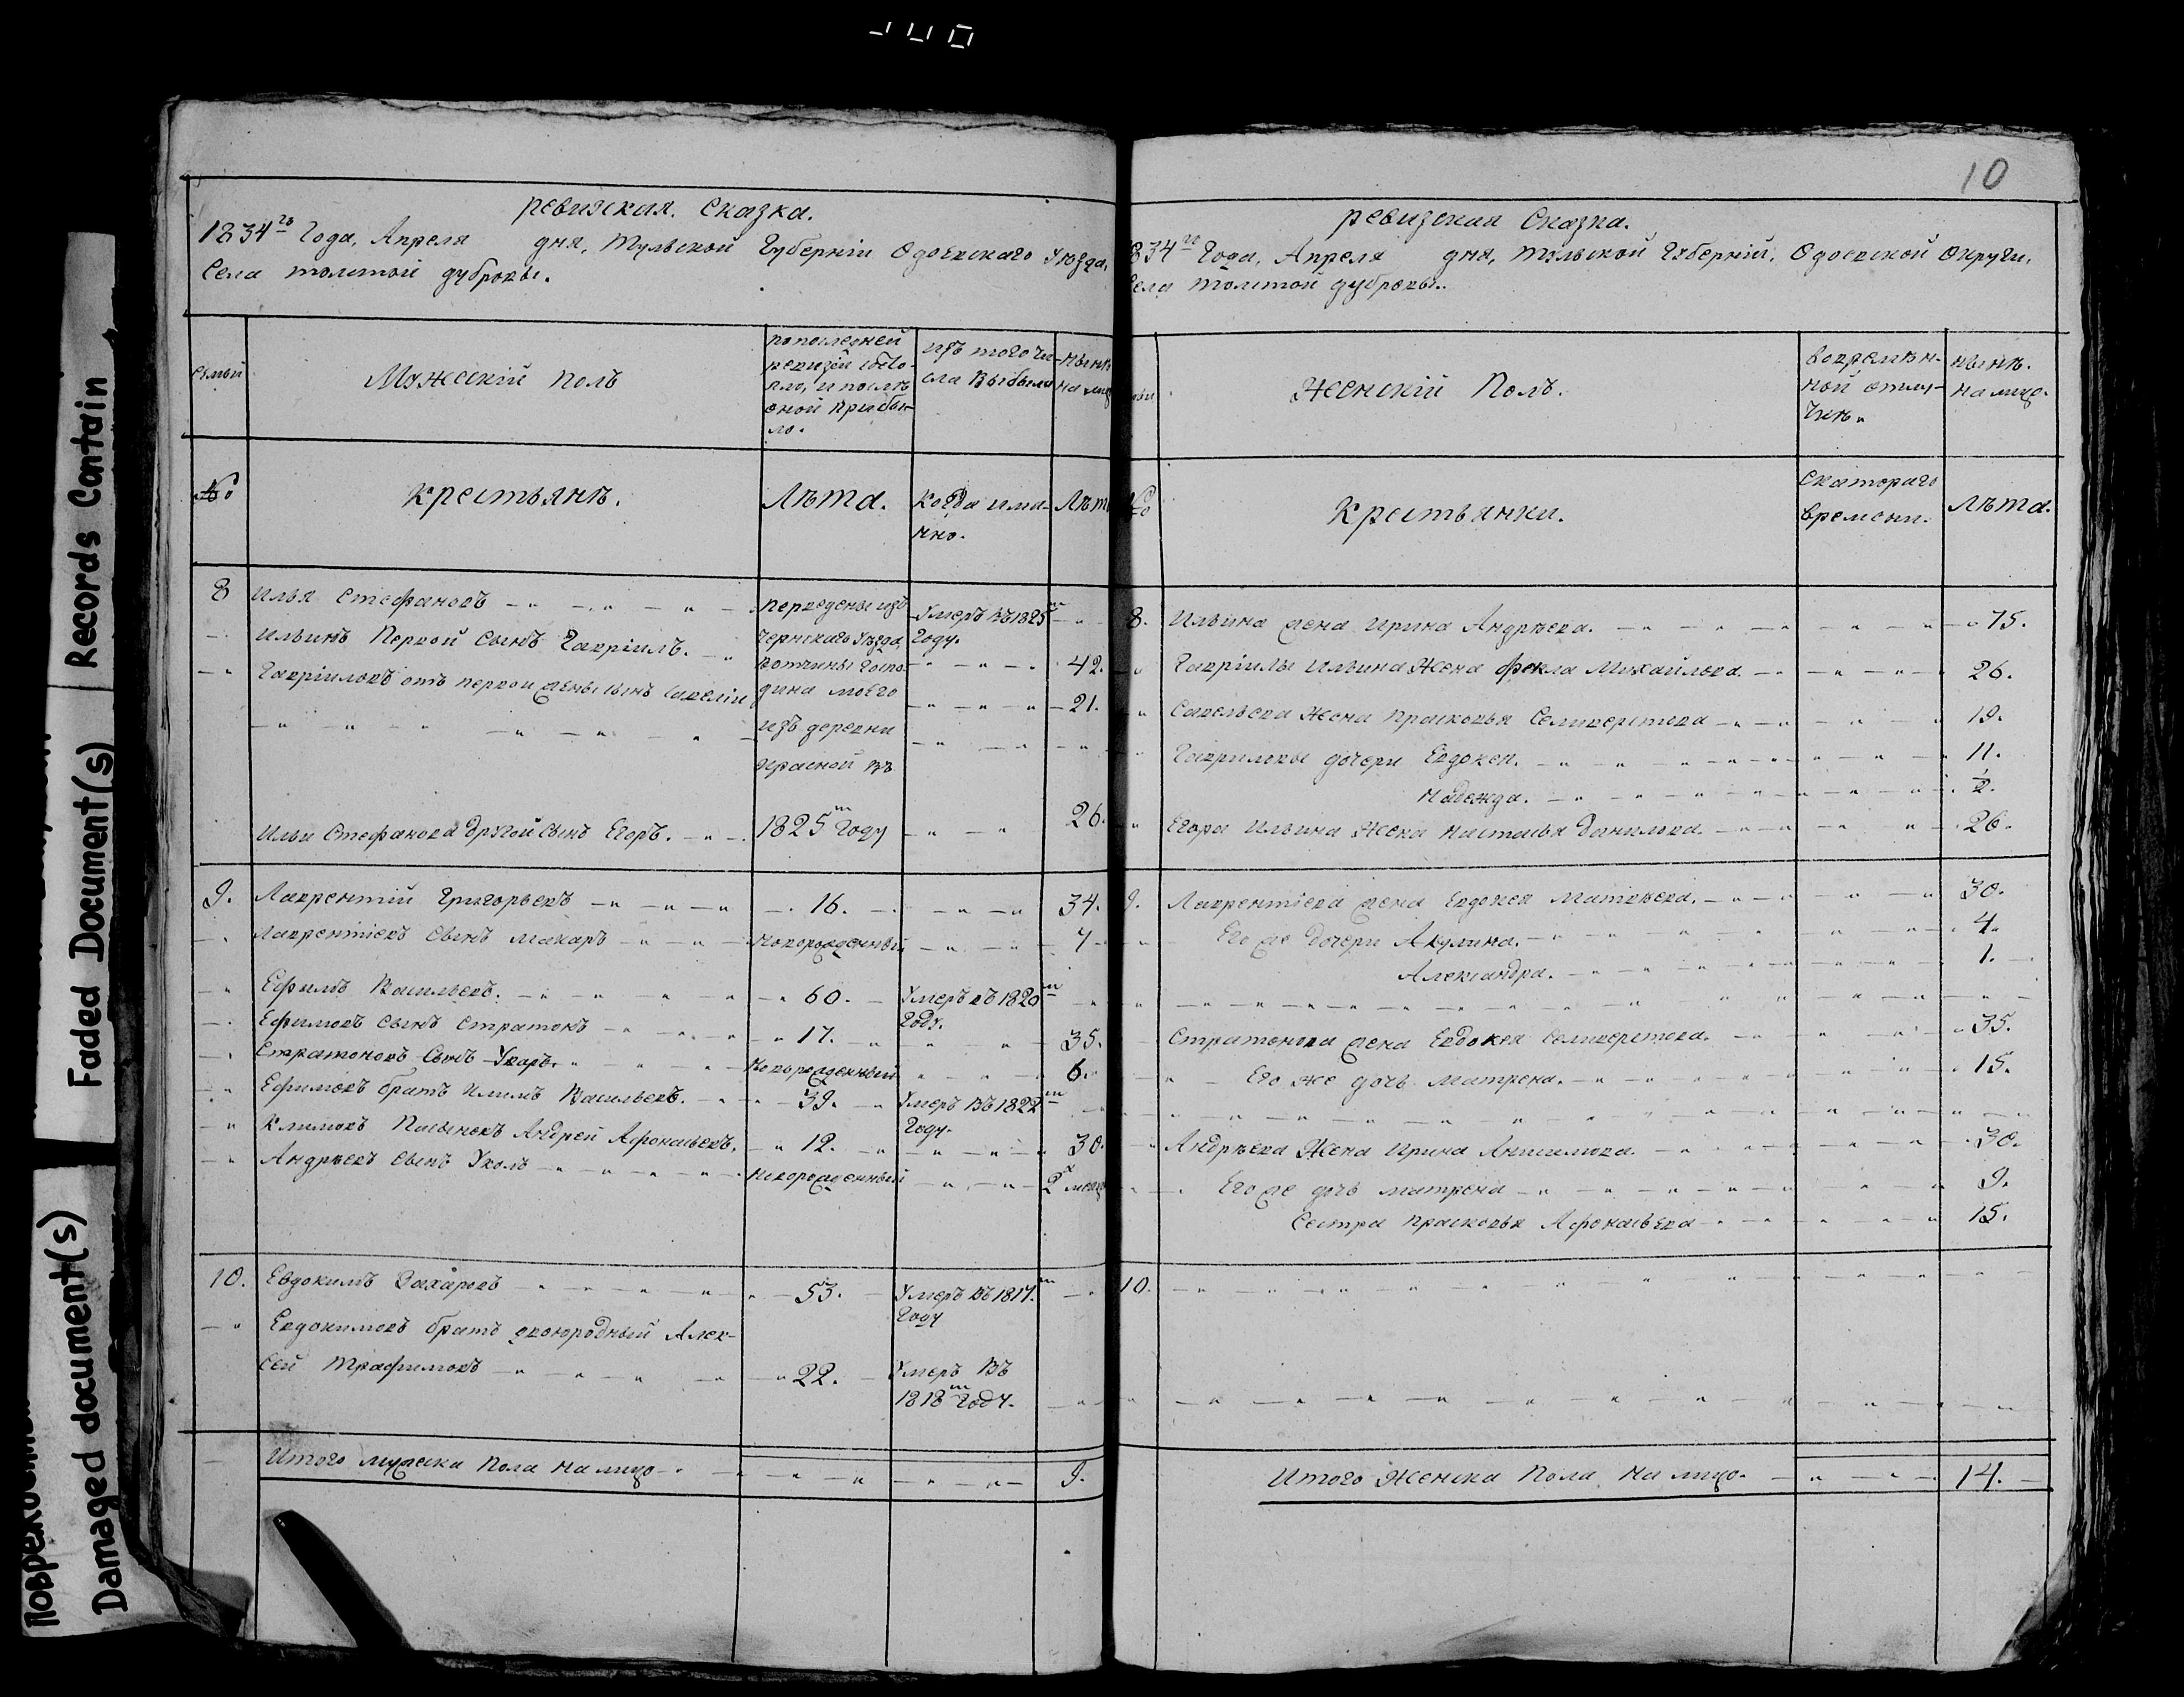 Records Contain
Faded Document(s)
Damaged document(s)
ревизская. Сказка.
1834го Года, Апреля дня, Тульской Губерніи Одоевскаго Уѣзда,
Села толстой дубровы.
семьи
Мужескій полъ
по последней
ревизіи состо-
яло, и послѣ
оной прибы-
ло.
изъ того чи-
сла выбыло
нынѣ
на лицо
№
Крестьянѣ.
Лѣта.
Когда имя-
нно.
Лѣта
8 Илья Стефановъ Переведены изъ Умеръ въ 1825м
Ильинъ Первой сынъ Гавріилъ. Чернскаго Уѣзда, Году.
вотчины Госпо- 42.
Гавріиловъ отъ первой жены сынъ Савелій дина моего 21.
изъ деревни
Красной въ
Ильи Стефанова другой сынъ Егоръ. 1825м Году 26.
9. Лаврентій Григорьевъ 16. 34.
Лаврентіевъ сынъ Макаръ Новорожденный 7
Ефимъ Васильевъ. 60. Умеръ въ 1820м
Году.
Ефимовъ сынъ Стратонъ 17. 35.
Стратоновъ Сынъ Уваръ. Новорожденный 6.
Ефимовъ братъ Климъ Васильевъ. 39. Умеръ въ 1822м
Году.
Климовъ Пасынокъ Андрей Афонасьевъ. 12. 30.
Андрѣевъ сынъ Новорожденный 2х
10. Евдокимъ Захаровъ 53. Умеръ въ 1817м
Году
Евдокимовъ братъ двоюродный Алек-
сей Трафимовъ 22. Умеръ въ
1818м Году.
Итого мужеска пола на лицо 9.
10
ревизская Сказка.
1834го Года, Апреля дня, Тульской Губерніи, Одоевской Округи,
Села толстой дубровы.
семьи
Женскій Полъ.
во времѣн-
ной отлу-
чкѣ.
нынѣ.
на лицо.
№
Крестьянки.
Скатораго
времени.
Лѣта.
8. Ильина жена Ирина Андрѣева. 75.
Гавріилы Ильина Жена Фекла Михайлова. 26.
Савельева Жена Прасковья Селиверстова 19.
Гавриловы дочери Евдокея. 11.
Надежда. 1/2.
Егора Ильина Жена Настасья Данилова. 26.
9. Лаврентіева жена Евдокея Матвѣева. 30.
Его же дочери Акулина. 4.
Александра. 1.
Стратонова жена Евдокея Селиверстова. 35.
Его же дочь Матрена. 15.
Андрѣева Жена Ирина Анисимова. 30.
Его же дочь Матрена 9.
Сестра Прасковья Афонасьева 15.
10.
Итого Женска Пола На лицо. 14.